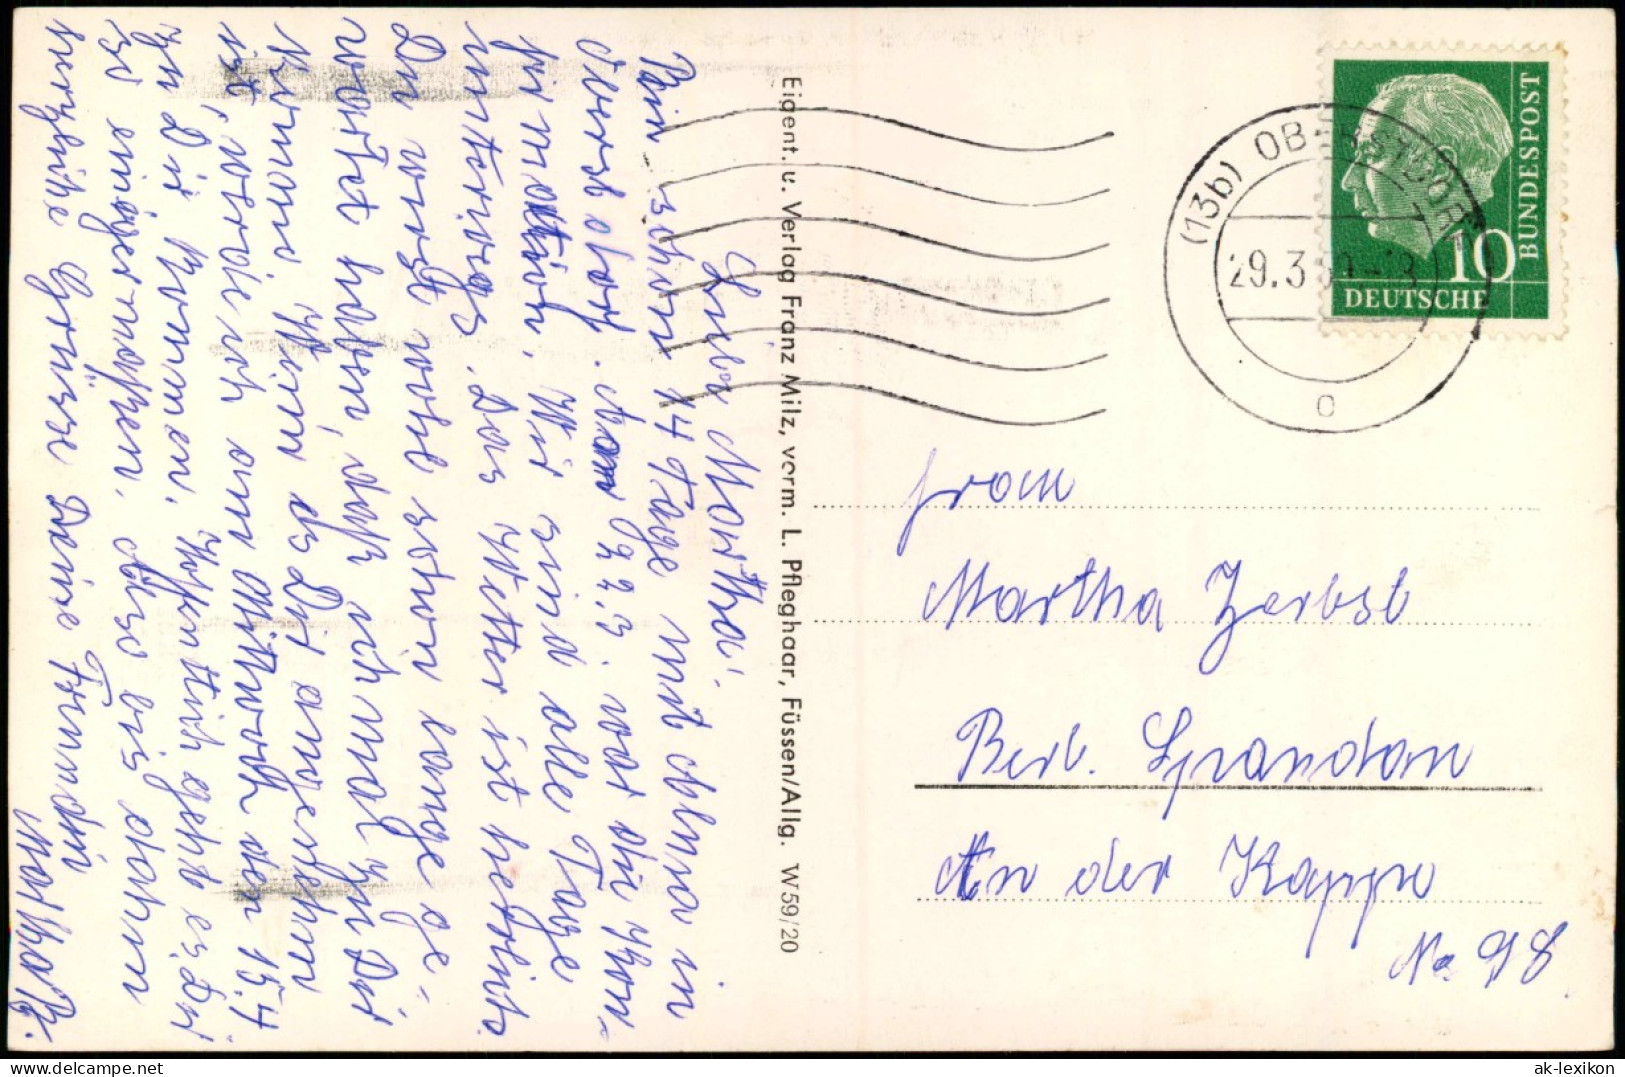 Liebe Martha!
Bin schon 14 Tage mit Alma in
Oberstdorf. Am 22.3. war die Kon-
firmation. Wir sind alle Tage
unterwegs. Das Wetter ist herrlich.
Du wirst wohl schon lange ge-
wartet haben, daß ich mal zu Dir
komme. Wenn es Dir angenehm
ist, würde ich am Mittwoch den 15.4
zu Dir kommen. Hoffentlich geht es Dir
so einigermaßen. Also bis dahin
herzliche Grüsse Deine Freundin
Eigent. u. Verlag Franz Milz, vorm. L. Pfleghaar, Füssen/Allg. W 59/20
(13b) OBERSTDORF
29.3.
o
BUNDESPOST
10
DEUTSCHE
Frau
Martha Zerbst
Berl. Spandau
An der Kappe
No 98.
ak-lexikon